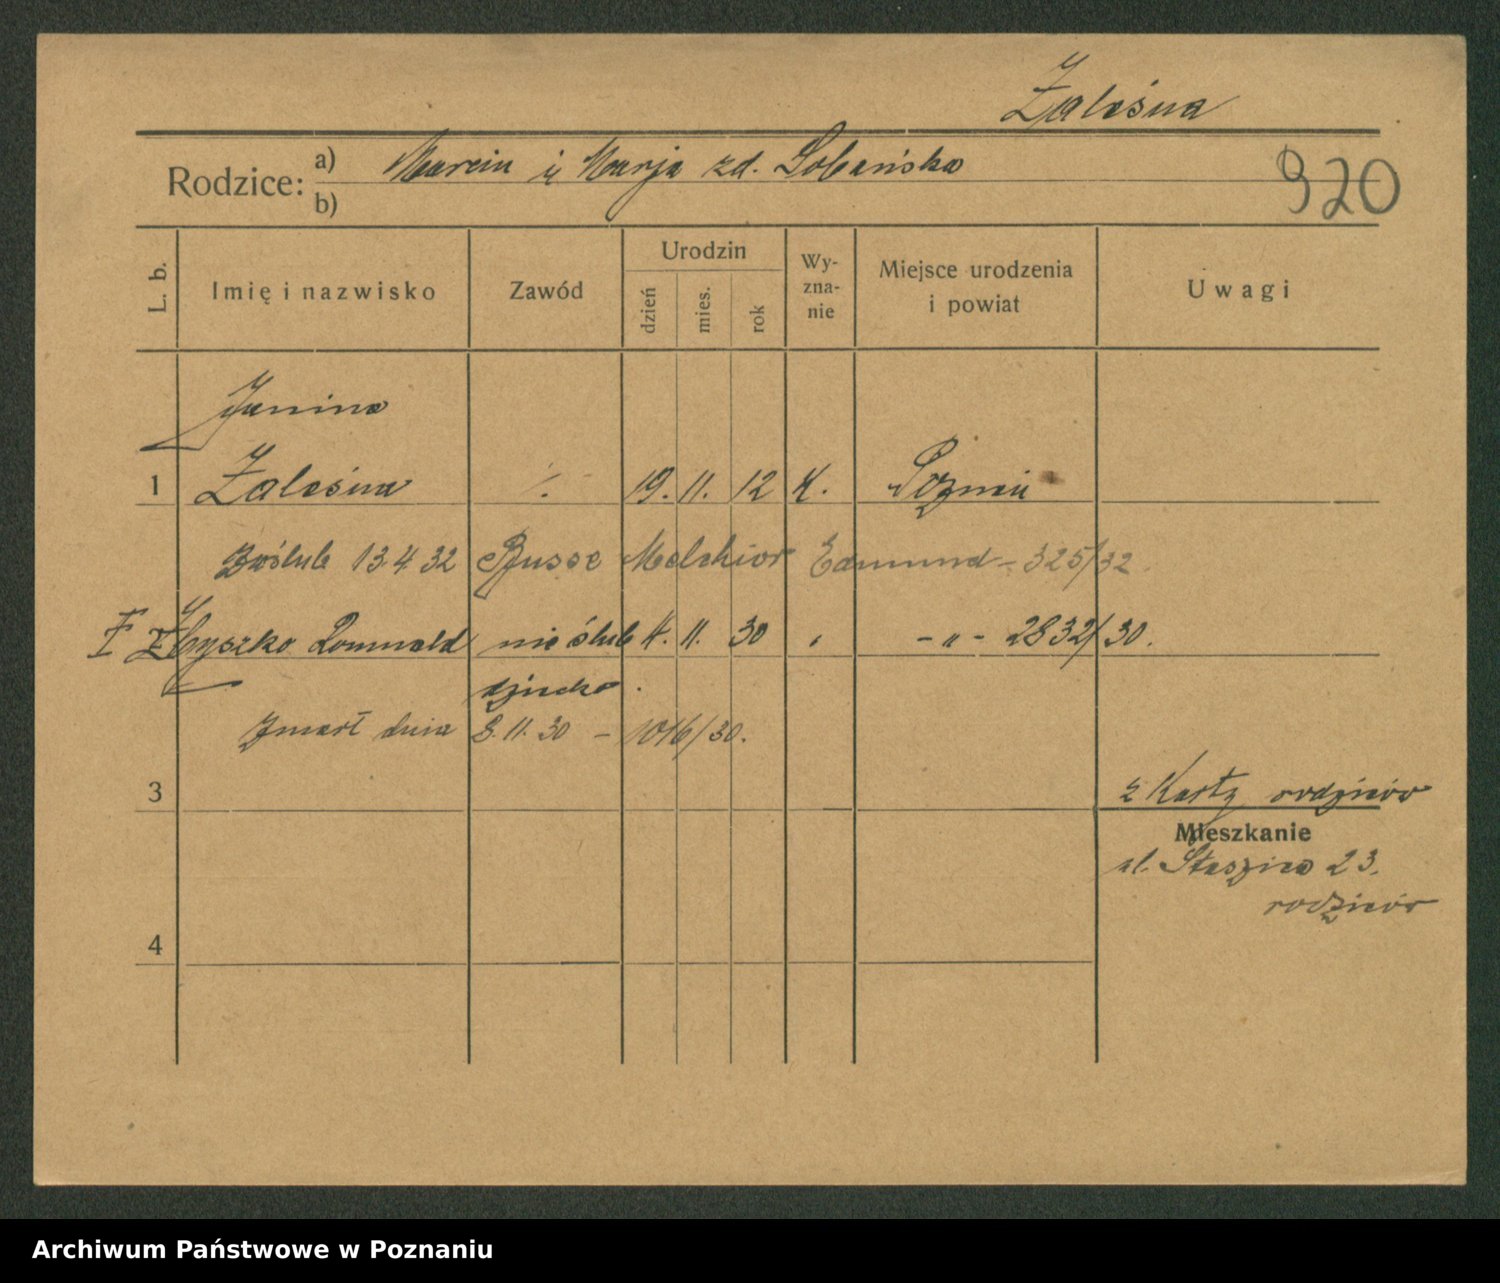 Zaleśna
Rodzice: a) Marcin i Marja zd. Lobańska
b)
920
L. b. Imię i nazwisko Zawód Urodzin dzień mies. rok Wy-zna-nie Miejsce urodzenia i powiat Uwagi
Janina
1 Zaleśna ./. 19. 11. 12 K. Poznań
Zaślub 13.4 32 Busse Melchior Edmund - 325/32.
Zbyszko Romuald nieślub 4. 11. 30 „ - „ - 2832/30.
dziecko.
Zmarł dnia 8.11.30 - 1016/30.
3
z Karty rodziców
Mieszkanie
ul. Staszica 23.
rodziców
4
Archiwum Państwowe w Poznaniu